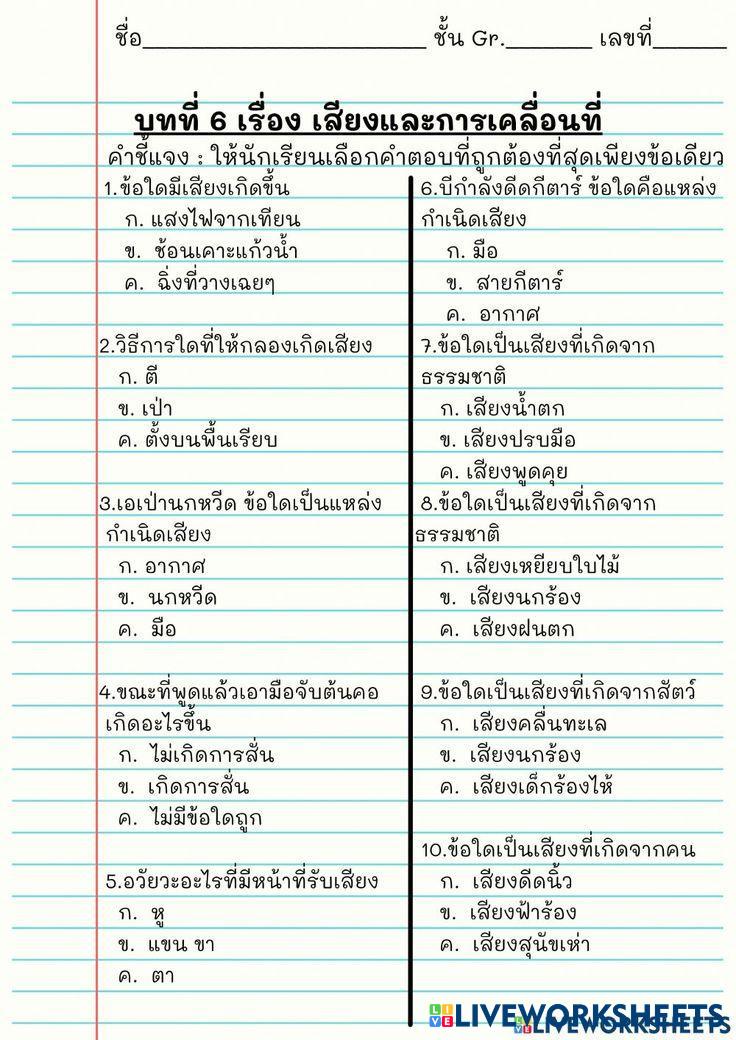 ชื่อ__________________________ ชั้น Gr.________ เลขที่_______
บทที่ 6 เรื่อง เสียงและการเคลื่อนที่
คำชี้แจง : ให้นักเรียนเลือกคำตอบที่ถูกต้องที่สุดเพียงข้อเดียว
1.ข้อใดมีเสียงเกิดขึ้น
ก. แสงไฟจากเทียน
ข. ช้อนเคาะแก้วน้ำ
ค. ฉิ่งที่วางเฉยๆ
2.วิธีการใดที่ให้กลองเกิดเสียง
ก. ตี
ข. เป่า
ค. ตั้งบนพื้นเรียบ
3.เอเป่านกหวีด ข้อใดเป็นแหล่ง
กำเนิดเสียง
ก. อากาศ
ข. นกหวีด
ค. มือ
4.ขณะที่พูดแล้วเอามือจับต้นคอ
เกิดอะไรขึ้น
ก. ไม่เกิดการสั่น
ข. เกิดการสั่น
ค. ไม่มีข้อใดถูก
5.อวัยวะอะไรที่มีหน้าที่รับเสียง
ก. หู
ข. แขน ขา
ค. ตา
6.บีกำลังดีดกีตาร์ ข้อใดคือแหล่ง
กำเนิดเสียง
ก. มือ
ข. สายกีตาร์
ค. อากาศ
7.ข้อใดเป็นเสียงที่เกิดจาก
ธรรมชาติ
ก. เสียงน้ำตก
ข. เสียงปรบมือ
ค. เสียงพูดคุย
8.ข้อใดเป็นเสียงที่เกิดจาก
ธรรมชาติ
ก. เสียงเหยียบใบไม้
ข. เสียงนกร้อง
ค. เสียงฝนตก
9.ข้อใดเป็นเสียงที่เกิดจากสัตว์
ก. เสียงคลื่นทะเล
ข. เสียงนกร้อง
ค. เสียงเด็กร้องไห้
10.ข้อใดเป็นเสียงที่เกิดจากคน
ก. เสียงดีดนิ้ว
ข. เสียงฟ้าร้อง
ค. เสียงสุนัขเห่า
LIVE LIVEWORKSHEETS
LIVE LIVEWORKSHEETS